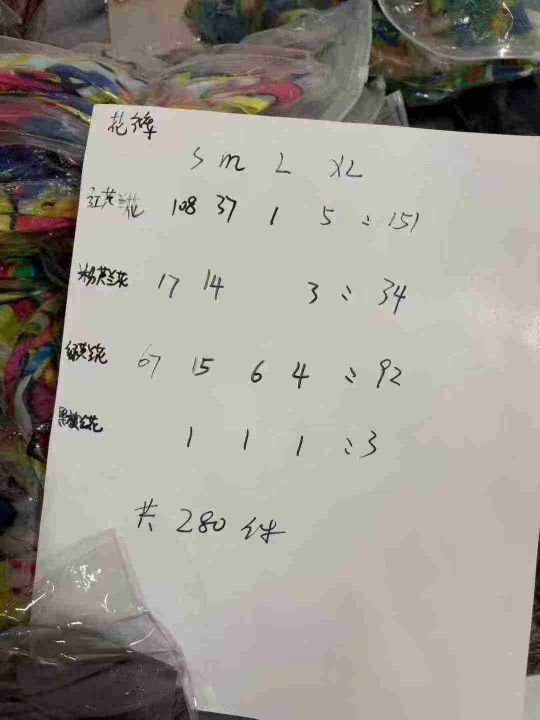 花裤
S M L XL
红芙兰花 108 37 1 5 : 151
粉芙兰花 17 14 3 : 34
67 15 6 4 : 92
1 1 1 : 3
共 280 件